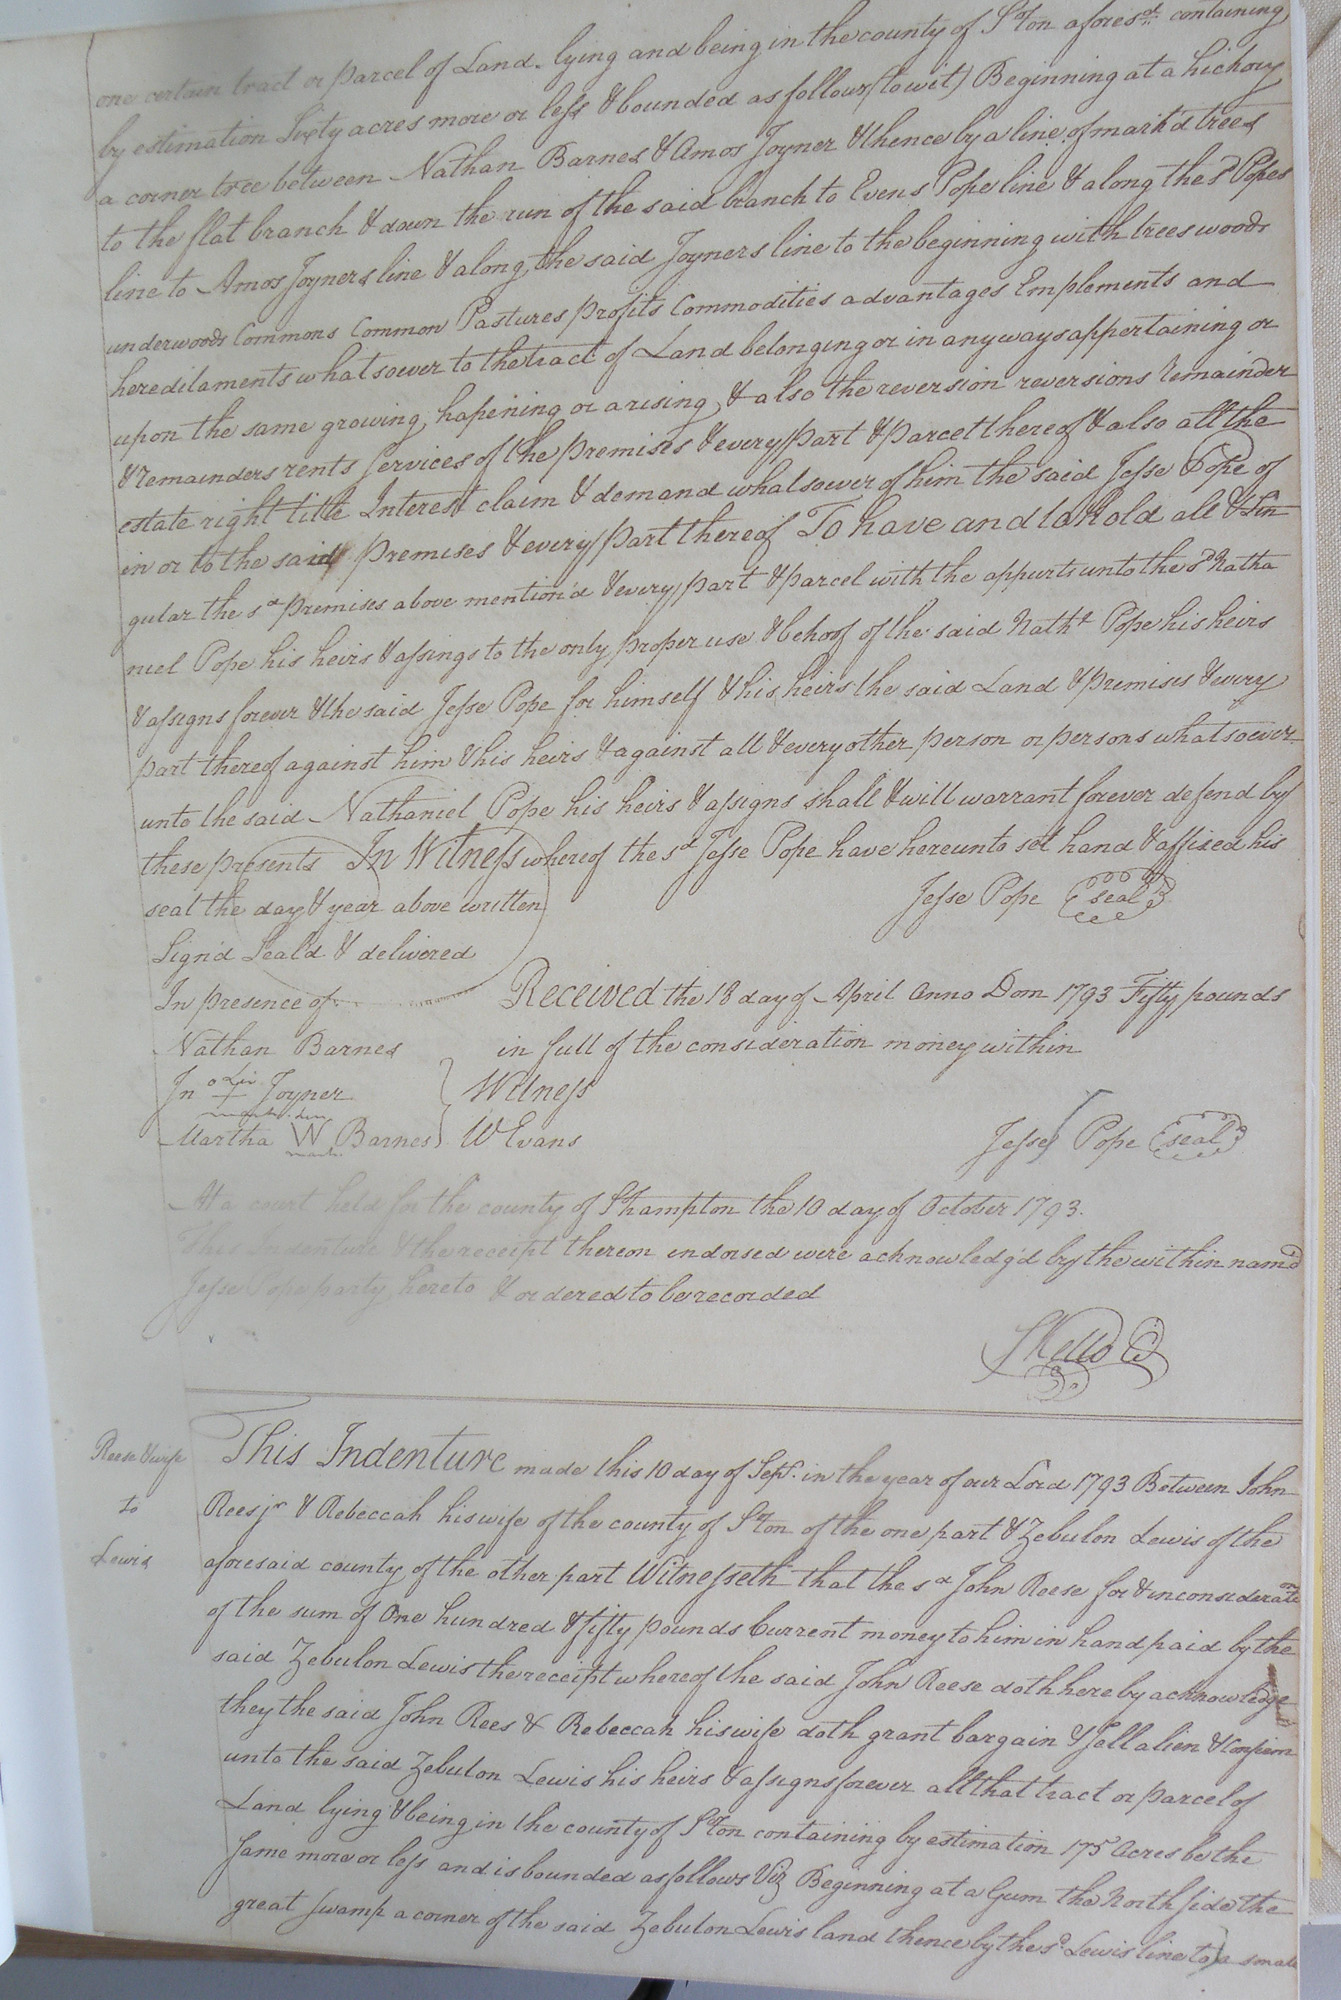 one certain tract or parcel of Land lying and being in the county of Sºton aforesd. containing
by estimation Sixty acres more or less & bounded as follows (to wit) Beginning at a hickory
a corner tree between Nathan Barnes & Amos Joyner & thence by a line of mark'd trees
to the flat branch & down the run of the said branch to Evens Pope line & along the sd Popes
line to Amos Joyners line & along the said Joyners line to the beginning with trees woods
underwoods Commons Common Pastures profits Commodities advantages Emplements and
hereditaments whatsoever to the tract of Land belonging or in any ways appertaining or
upon the same growing, hapening or arising, & also the reversion reversions remainder
& remainders rents services of the premises & every part & parcel thereof & also all the
estate right title Interest claim & demand whatsoever of him the said Jesse Pope of
in or to the said premises & every part thereof To have and to hold all & Sin
gular the sd premises above mention'd & every part & parcel with the appurts unto the sd Natha
niel Pope his heirs & assings to the only proper use & behoof of the said Nathl Pope his heirs
& assigns forever & the said Jesse Pope for himself & his heirs the said Land & premises & every
part thereof against him & his heirs & against all & every other person or persons whatsoever
unto the said Nathaniel Pope his heirs & assigns shall & will warrant forever defend by
these presents In Witness whereof the sd Jesse Pope have hereunto set hand & affixed his
seal the day & year above written
Jesse Pope seal
Sign'd Seal'd & delivered
In presence of
Nathan Barnes
Jno Joyner
mark her
Martha W Barnes
mark
Received the 18 day of April Anno Dom 1793 Fifty pounds
in full of the consideration money within
Witness
W Evans
Jesse Pope seal
At a court held for the county of Sºhampton the 10 day of October 1793.
This Indenture & the receipt thereon indorsed were acknowledg'd by the within nam'd
Jesse Pope party hereto & ordered to be recorded
S Kello C
Reese & wife
to
Lewis
This Indenture made this 10 day of Sept. in the year of our Lord 1793 Between John
Rees jr & Rebeccah his wife of the county of Sºton of the one part & Zebulon Lewis of the
aforesaid county of the other part Witnesseth that the sd John Reese for & in consideration
of the sum of One hundred & fifty pounds Current money to him in hand paid by the
said Zebulon Lewis the receipt whereof the said John Reese doth hereby acknowledge
they the said John Rees & Rebeccah his wife doth grant bargain & Sell alien & Confirm
unto the said Zebulon Lewis his heirs & assigns forever all that tract or parcel of
Land lying & being in the county of Sºton containing by estimation 175 Acres be the
same more or less and is bounded as follows Viz Beginning at a Gum the North side the
great swamp a corner of the said Zebulon Lewis land thence by the sd Lewis line to a small